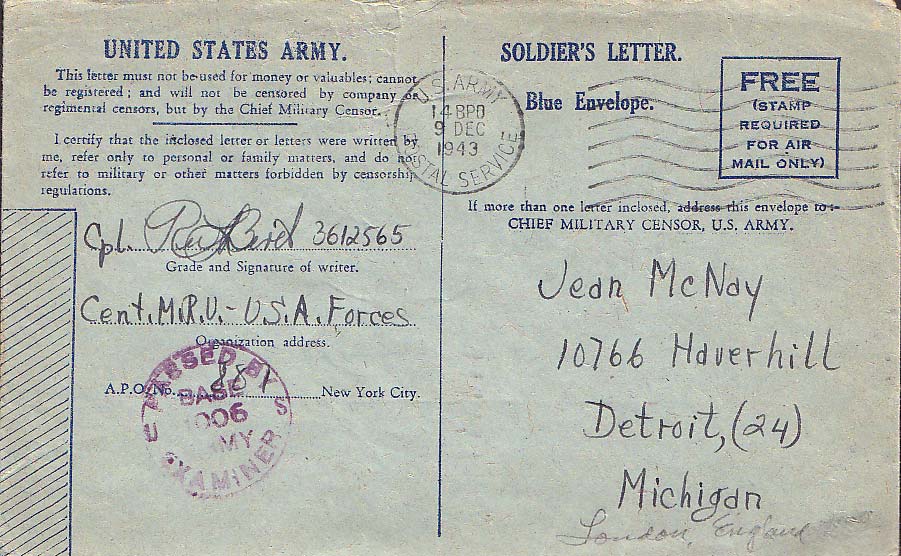 UNITED STATES ARMY.
This letter must not be used for money or valuables; cannot
be registered; and will not be censored by company or
regimental censors, but by the Chief Military Censor.
I certify that the inclosed letter or letters were written by
me, refer only to personal or family matters, and do not
refer to military or other matters forbidden by censorship
regulations.
Cpl. 3612565
Grade and Signature of writer.
Cent. M.R.U. - U.S.A. Forces
Organization address.
A.P.O. No. 887 New York City.
PASSED BY
BASE
1006
ARMY
EXAMINER
U S
U.S. ARMY
14 BPO
9 DEC
1943
POSTAL SERVICE
SOLDIER'S LETTER.
Blue Envelope.
FREE
(STAMP
REQUIRED
FOR AIR
MAIL ONLY)
If more than one letter inclosed, address this envelope to:-
CHIEF MILITARY CENSOR, U.S. ARMY.
Jean McNay
10766 Haverhill
Detroit, (24)
Michigan
London, England